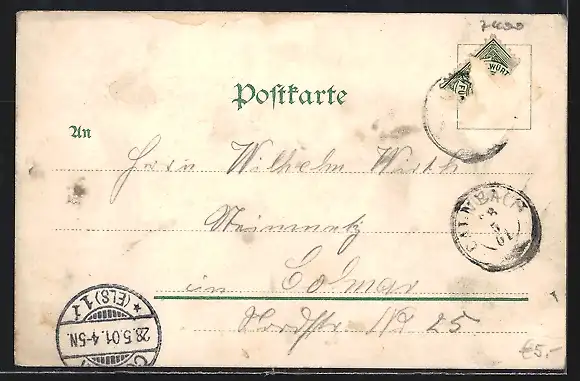 7400
WÜRT
Postkarte
An
Herrn Wilhelm Wirth
CALMBACH
28
5
01
Steinmetz
in Colmar
Nordstr. Nr 25
* (ELS) 1 f
28.5.01.4-5N.
€5,-